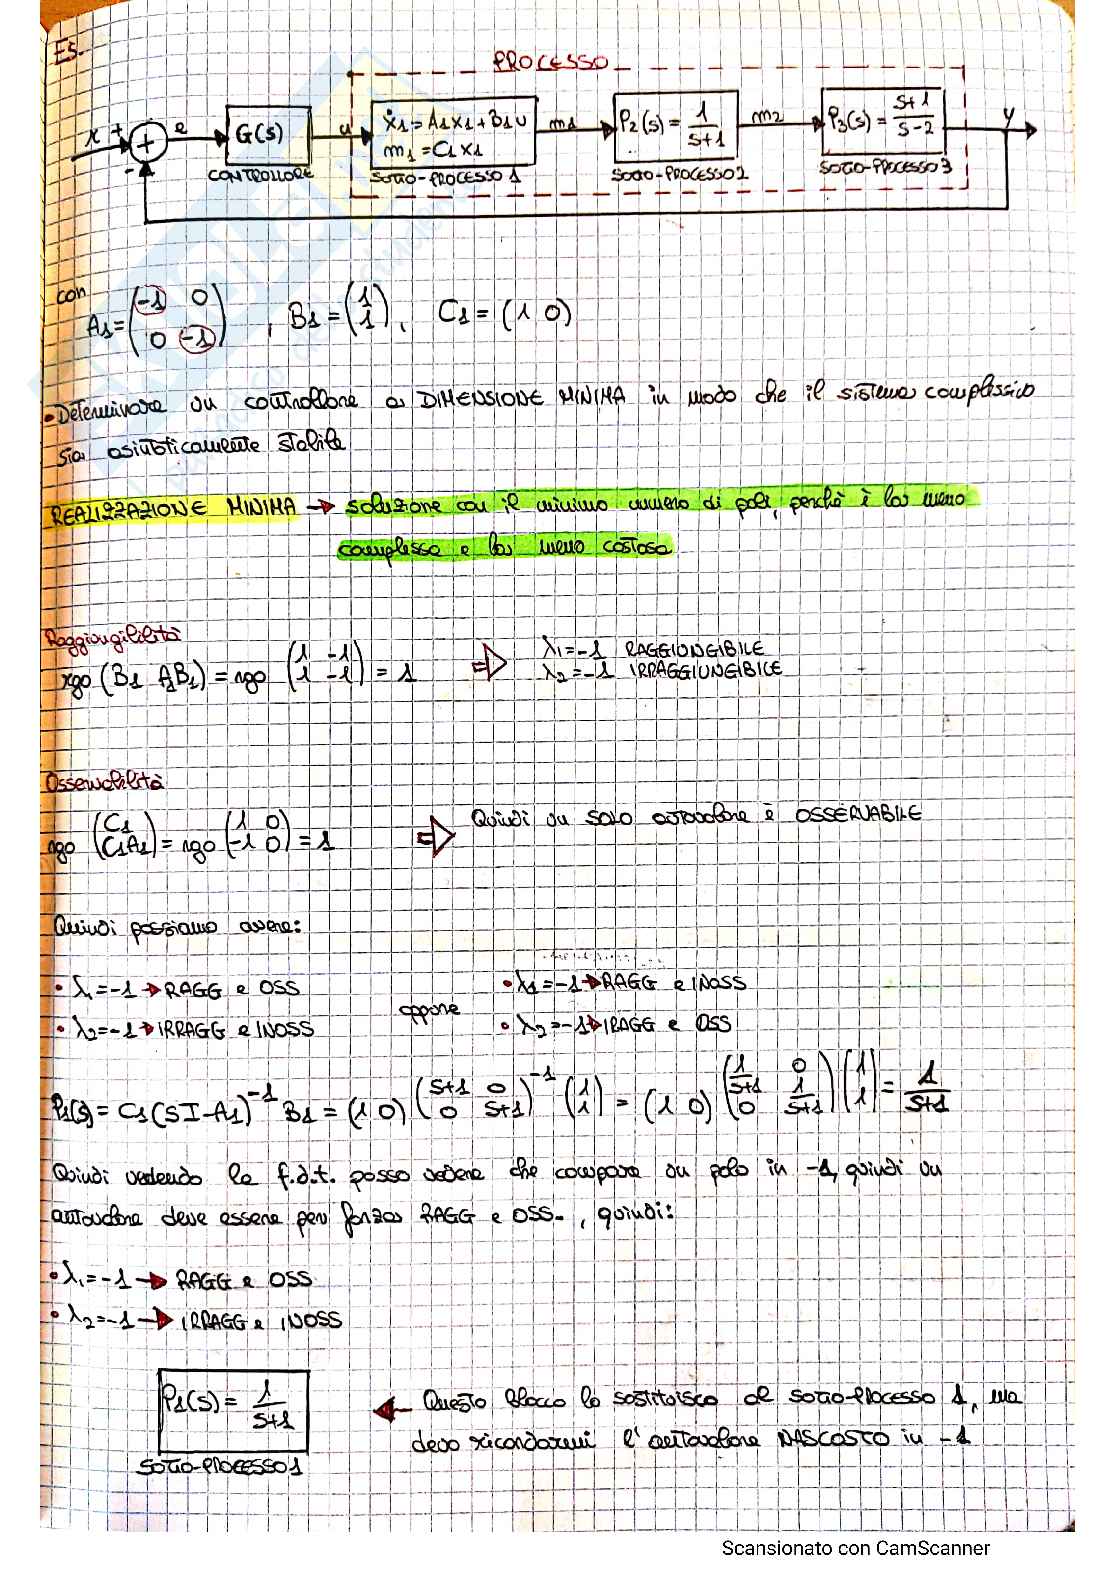 ES.
PROCESSO
x + e G(s) u ẋ1 = A1x1 + B1u m1 P2(s) = 1/(s+1) m2 P3(s) = (s+1)/(s-2) y
- m1 = C1x1
CONTROLLORE SOTTO-PROCESSO 1 SOTTO-PROCESSO 2 SOTTO-PROCESSO 3
con
A1 = (-1 0; 0 -1), B1 = (1; 1), C1 = (1 0)
• Determinare un controllore a DIMENSIONE MINIMA in modo che il sistema complessivo
sia asintoticamente stabile
REALIZZAZIONE MINIMA → soluzione con il minimo numero di poli, perchè è la meno
complessa e la meno costosa
Raggiungibilità
rgo (B1 A1B1) = rgo (1 -1; 1 -1) = 1 ⇒ λ1=-1 RAGGIUNGIBILE
λ2=-1 IRRAGGIUNGIBILE
Osservabilità
rgo (C1; C1A1) = rgo (1 0; -1 0) = 1 ⇒ Quindi un solo autovalore è OSSERVABILE
Quindi possiamo avere:
• λ1=-1 → RAGG e OSS oppure • λ1=-1 → RAGG e INOSS
• λ2=-1 → IRRAGG e INOSS • λ2=-1 → IRAGG e OSS
P1(s) = C1(SI-A1)^-1 B1 = (1 0) (s+1 0; 0 s+1)^-1 (1; 1) = (1 0) (1/(s+1) 0; 0 1/(s+1)) (1; 1) = 1/(s+1)
Quindi vedendo la f.d.t. posso vedere che compare un polo in -1, quindi un
autovalore deve essere per forza RAGG e OSS., quindi:
• λ1=-1 → RAGG e OSS
• λ2=-1 → IRRAGG e INOSS
P1(s) = 1/(s+1) ← Questo blocco lo sostituisco al sotto-processo 1, ma
devo ricordarmi l'autovalore NASCOSTO in -1
SOTTO-PROCESSO 1
Scansionato con CamScanner